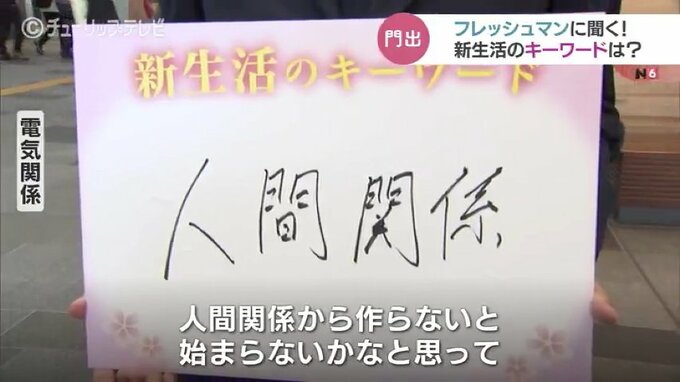 ©チューリップ・テレビ
門出
フレッシュマンに聞く!
新生活のキーワードは?
N6
新生活のキーワード
電気関係
人間関係
人間関係から作らないと
始まらないかなと思って